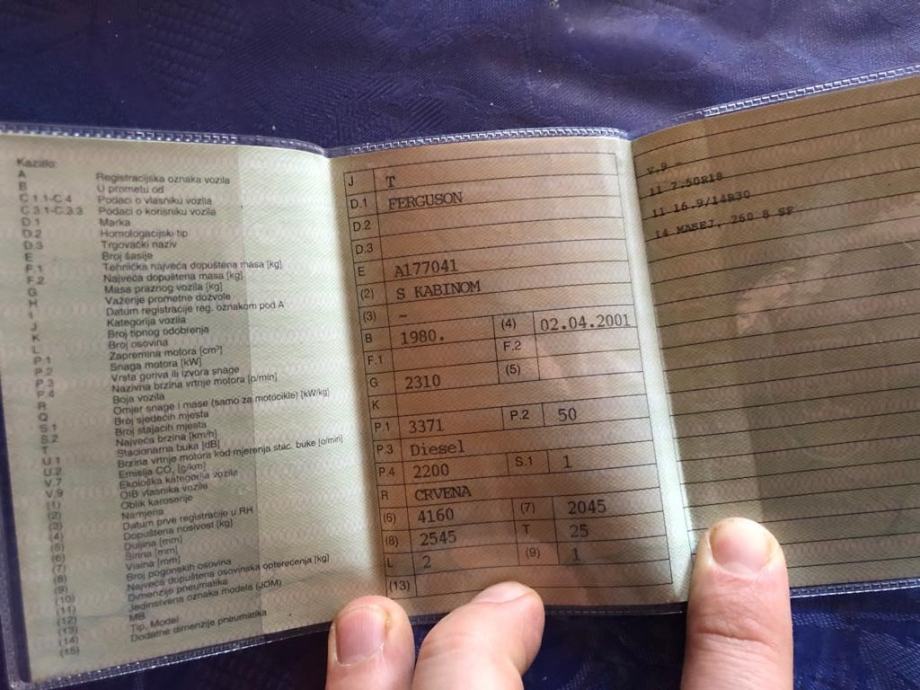 Kazillo:
A Registracijska oznaka vozila
B U prometu od
C 1.1-C.4 Podaci o vlasniku vozila
C 3.1-C.3.3 Podaci o korisniku vozila
D.1 Marka
D.2 Homologacijski tip
D.3 Trgovački naziv
E Broj šasije
F.1 Tehnička najveća dopuštena masa [kg]
F.2 Najveća dopuštena masa [kg]
G Masa praznog vozila [kg]
H Važenje prometne dozvole
I Datum registracije reg. oznakom pod A
J Kategorija vozila
K Broj tipnog odobrenja
L Broj osovina
P.1 Zapremina motora [cm³]
P.2 Snaga motora [kW]
P.3 Vrsta goriva ili izvora snage
P.4 Nazivna brzina vrtnje motora [o/min]
R Boja vozila
Q Omjer snage i mase (samo za motocikle) [kW/kg]
S.1 Broj sjedećih mjesta
S.2 Broj stajaćih mjesta
T Najveća brzina [km/h]
U.1 Stacionarna buka [dB]
U.2 Brzina vrtnje motora kod mjerenja stac. buke [o/min]
V.7 Emisija CO₂ [g/km]
V.9 Ekološka kategorija vozila
(1) OIB vlasnika vozila
(2) Oblik karoserije
(3) Namjena
(4) Datum prve registracije u RH
(5) Dopuštena nosivost [kg]
(6) Duljina [mm]
(7) Širina [mm]
(8) Visina [mm]
(9) Broj pogonskih osovina
(10) Najveća dopuštena osovinska opterećenja [kg]
(11) Dimenzije pneumatika
(12) Jedinstvena oznaka modela (JOM)
(13) MB
(14) Tip, Model
(15) Dodatne dimenzije pneumatika
J T
D.1 FERGUSON
D.2
D.3
E A177041
(2) S KABINOM
(3) -
B 1980. (4) 02.04.2001
F.1 F.2
G 2310 (5)
K
P.1 3371 P.2 50
P.3 Diesel
P.4 2200 S.1 1
R CRVENA
(6) 4160 (7) 2045
(8) 2545 T 25
L 2 (9) 1
(13)
V.9 -
11 7.50R18
11 16.9/14R30
14 MASEJ, 260 8 SP